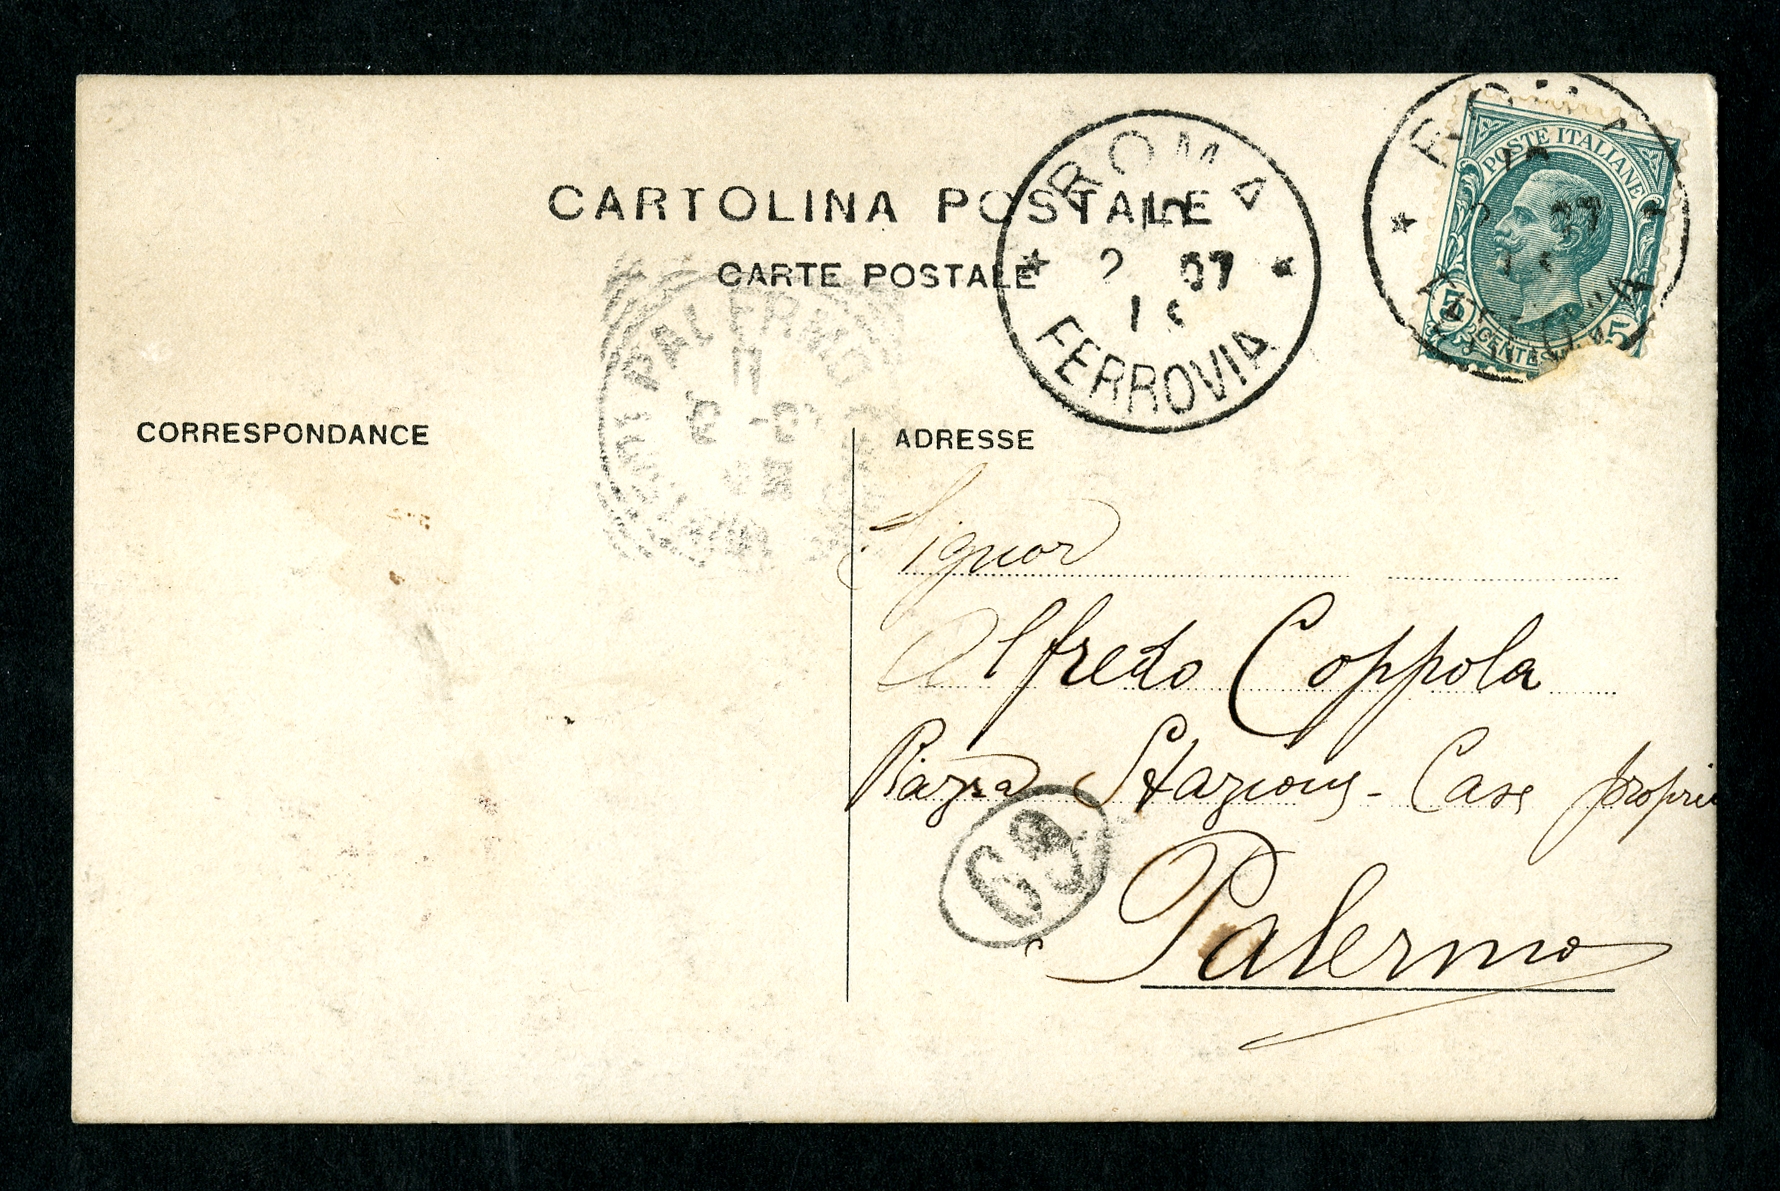 CARTOLINA POSTALE
CARTE POSTALE
ROMA
15
2 07
FERROVIA
POSTE ITALIANE
5 5
CENTES
PALERMO
CORRESPONDANCE
ADRESSE
Signor
Alfredo Coppola
Piazza Stazione - Case proprie
69
Palermo